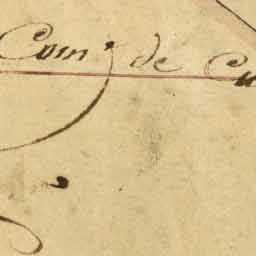 Com. de Cu